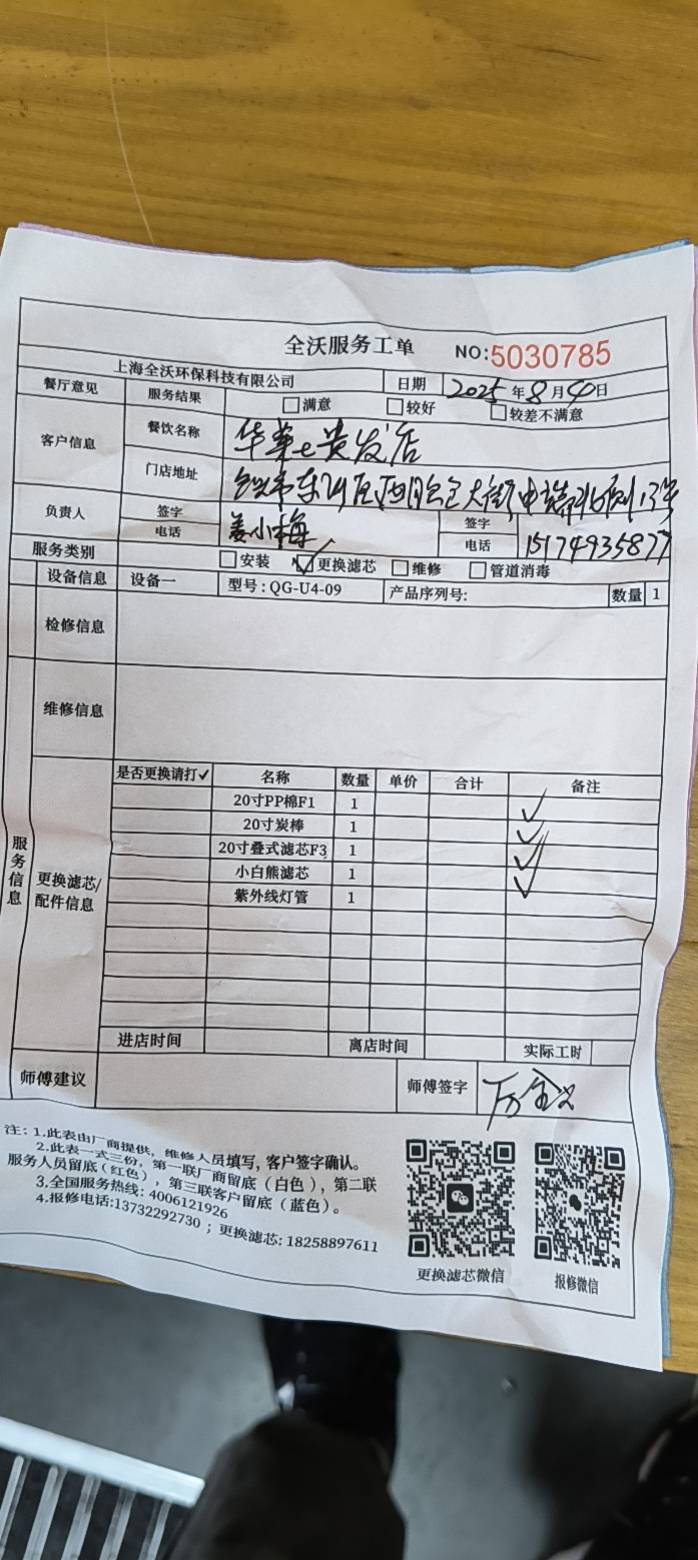 全沃服务工单 NO:5030785
上海全沃环保科技有限公司 日期 2025年8月4日
餐厅意见 服务结果 满意 较好 较差不满意
客户信息 餐饮名称 华莱士贵发店
门店地址
负责人 签字 姜小梅 签字
电话 电话 15174935877
服务类别 安装 ✓更换滤芯 维修 管道消毒
设备信息 设备一 型号:QG-U4-09 产品序列号: 数量 1
检修信息
维修信息
服务信息
更换滤芯/配件信息
是否更换请打✓ 名称 数量 单价 合计 备注
20寸PP棉F1 1 ✓
20寸炭棒 1 ✓
20寸叠式滤芯F3 1 ✓
小白熊滤芯 1 ✓
紫外线灯管 1
进店时间 离店时间 实际工时
师傅建议 师傅签字
注: 1.此表由厂商提供, 维修人员填写, 客户签字确认。
2.此表一式三份, 第一联厂商留底(白色), 第二联
服务人员留底(红色), 第三联客户留底(蓝色)。
3.全国服务热线: 4006121926
4.报修电话:13732292730 ; 更换滤芯: 18258897611
更换滤芯微信 报修微信